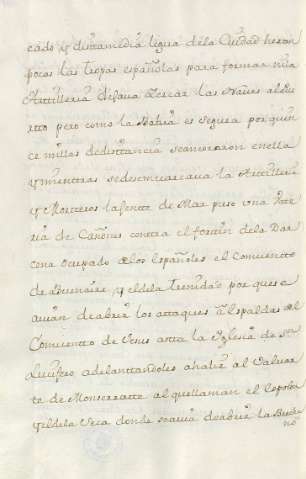 cado y dista media legua de la Ciudad heran
pocas las tropas españolas para formar una
Artilleria dejava acercar las Naves al Pu
erto pero como la Bahia es segura por quin
ce millas de distancia se ancoraron en ella
y mientras se desembarcava la Artilleria
y Morteros la gente de Mar puso una Bate
ria de Cañones contra el fortin de la Dar
cena ocupado de los Españoles el Comvento
de Buenaire, y el de la Trenidad por que se
avian de abrir los attaques a las espaldas del
Comvento de Jesus asta la Yglesia de Sn
adelantandoles ahazia al Valuar
te de Monserratte al que llaman el
y el de la Seca donde se avia de abrir la Brecha
no